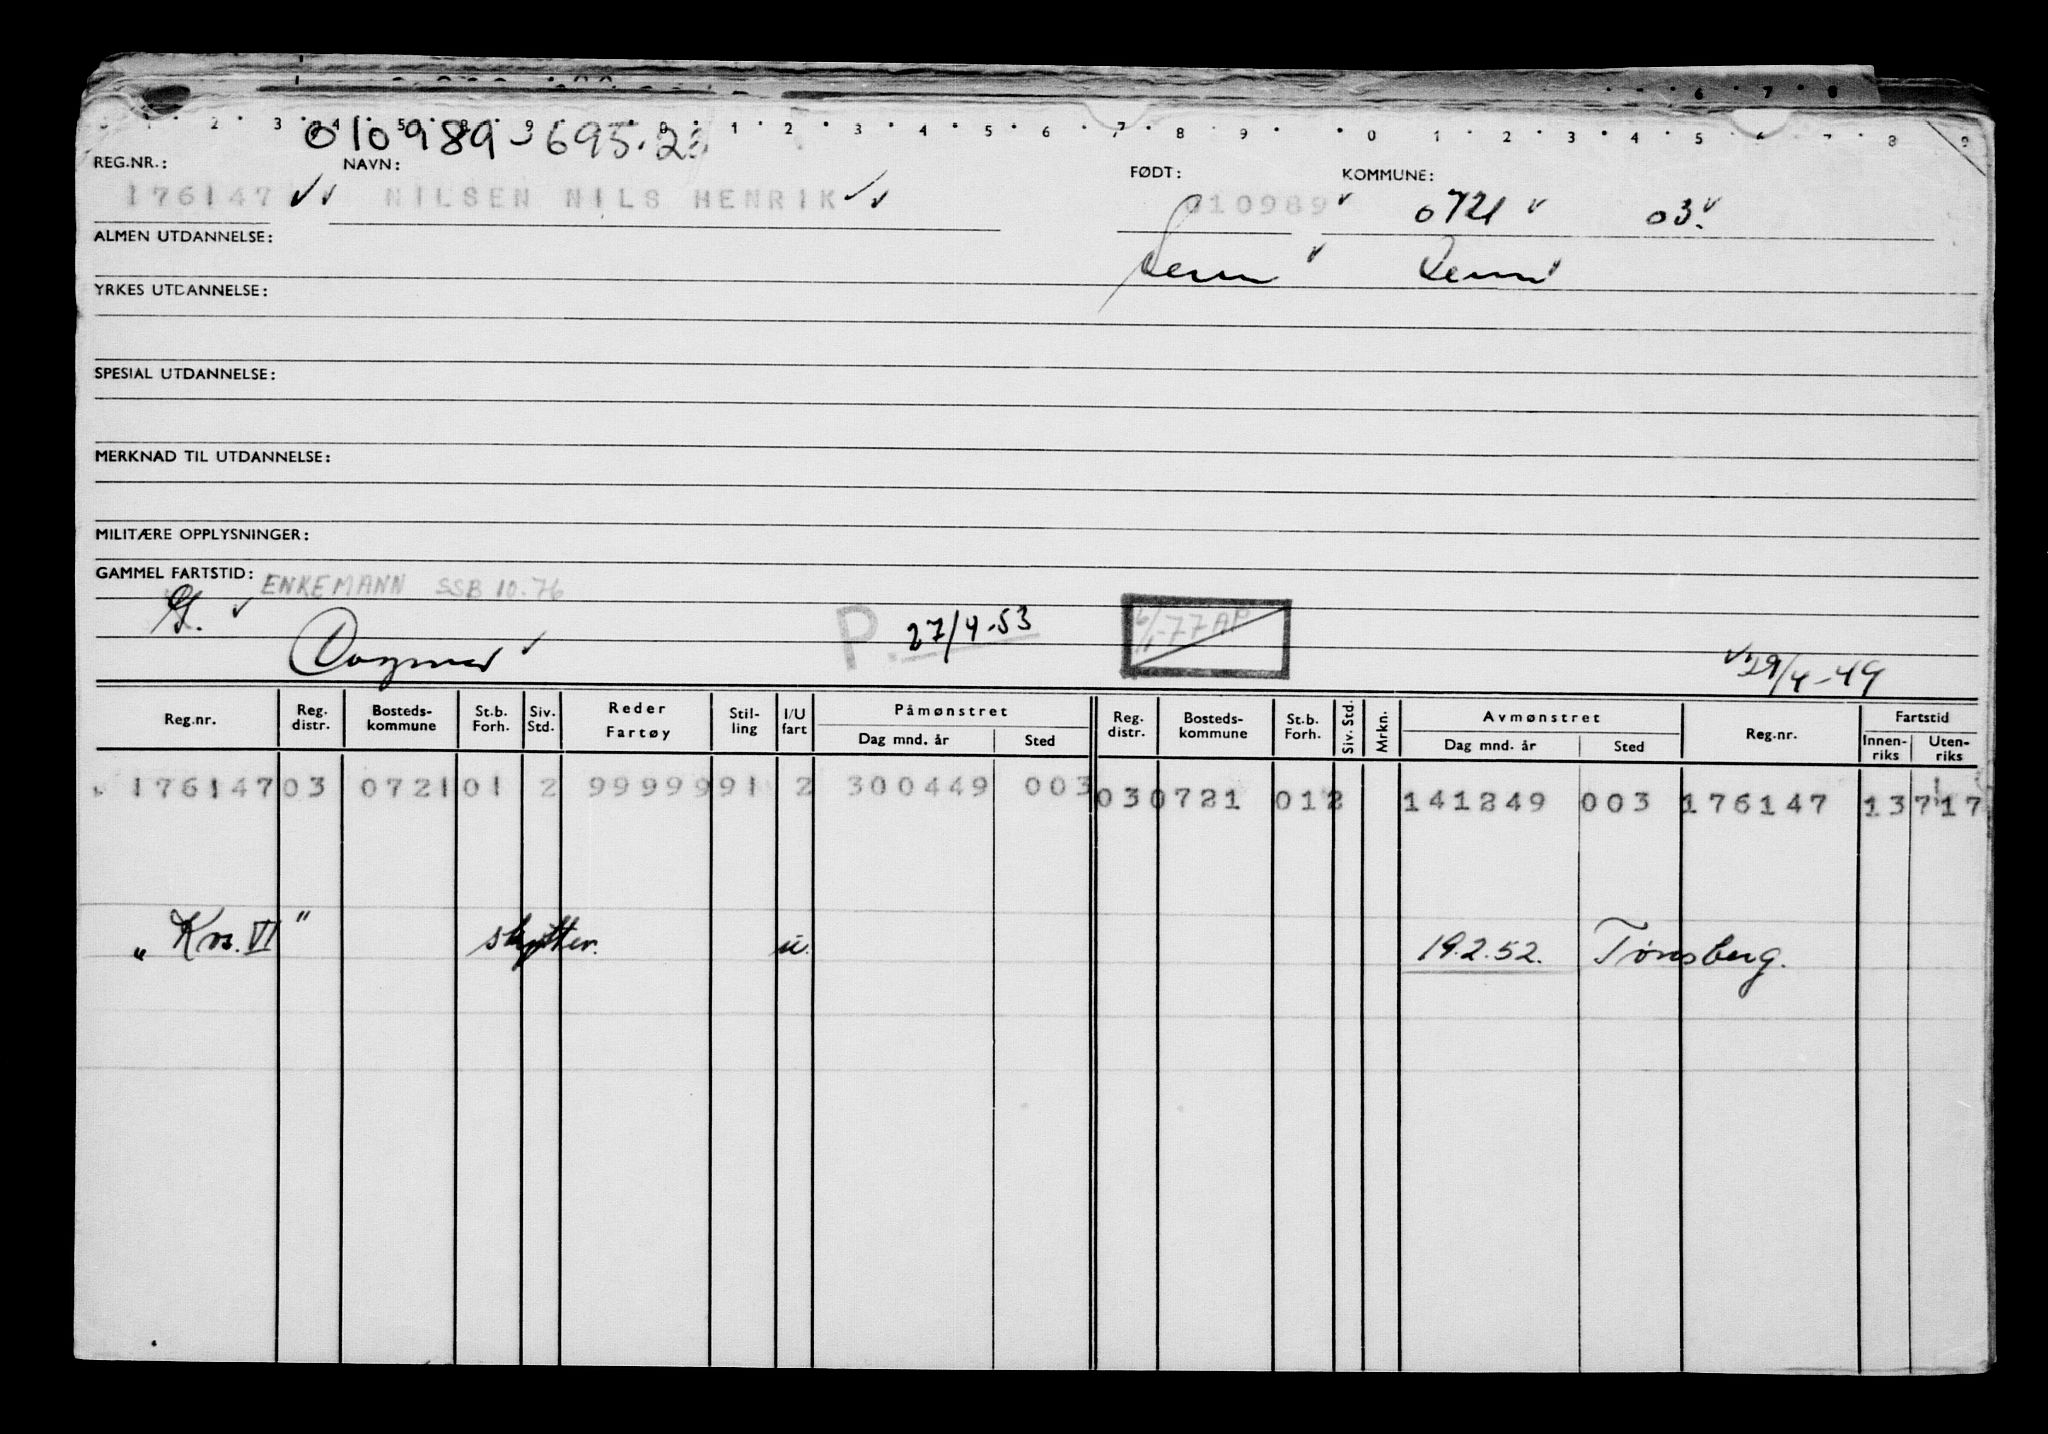 6 7 8
1 2 3 4 5 8 9 0 1 2 3 4 5 6 7 8 9 0 1 2 3 4 5 7 8 9
010989-695.2
REG.NR.: NAVN: FØDT: KOMMUNE:
176147 NILSEN NILS HENRIK 010989 0721 03.
ALMEN UTDANNELSE: Sem Sem
YRKES UTDANNELSE:
SPESIAL UTDANNELSE:
MERKNAD TIL UTDANNELSE:
MILITÆRE OPPLYSNINGER:
GAMMEL FARTSTID: ENKEMANN SSB 10.76
G. P. 27/4-53 -77 AP
Dagmar 29/4-49
Reg.nr. Reg. distr. Bosteds-kommune St.b. Forh. Siv. Std. Reder Fartøy Stil-ling I/U fart Påmønstret Dag mnd. år Sted Reg. distr. Bosteds-kommune St.b. Forh. Siv. Std. Mrkn. Avmønstret Dag mnd. år Sted Reg.nr. Fartstid Innen-riks Uten-riks
176147 03 0721 01 2 9999991 2 300449 003 03 0721 01 2 141249 003 176147 13717
"Kos. VI" skytter. u. 19.2.52. Tønsberg.